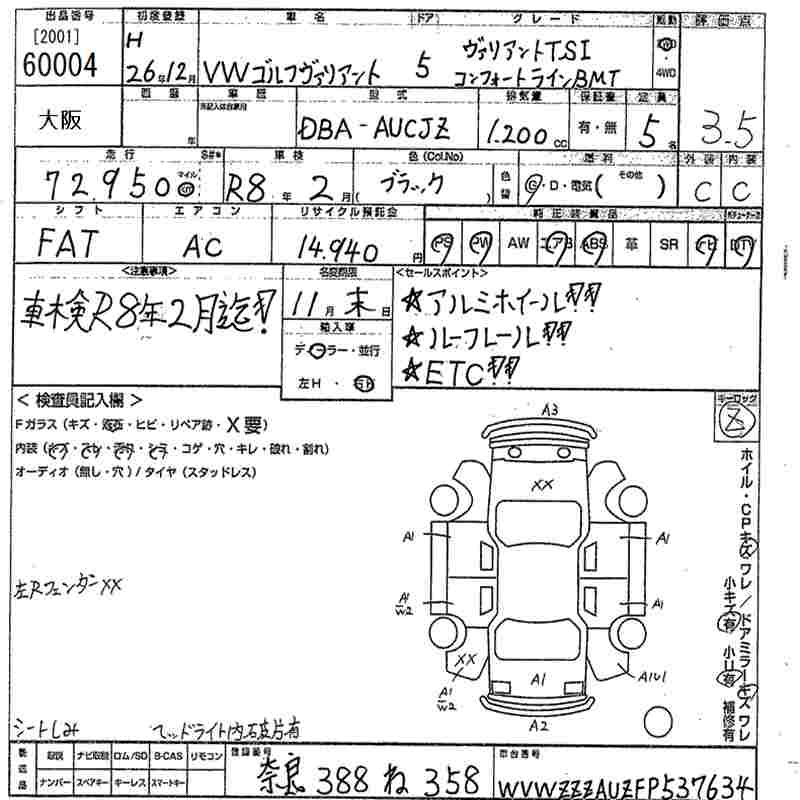 出品番号 初度登録 車名 ドア グレード 駆動 評価点
[2001] H ヴァリアントTSI 2WD
60004 26年12月 VWゴルフヴァリアント 5 コンフォートラインBMT 4WD
車歴 型式 排気量 保証書 定員
大阪 年 DBA-AUCJZ 1.200cc 有・無 5名 3.5
走行 S#* 車検 色(Col.No) 燃料 その他 外装 内装
72.950 マイル km R8年2月 ブラック 色替 G・D・電気( ) C C
シフト エアコン リサイクル預託金 純正装備品
FAT AC 14.940円 PS PW AW エアB ABS 革 SR ナビ DTV
<注意事項> 名変期限 <セールスポイント>
車検R8年2月迄!! 11月末日 ☆アルミホイール!!
輸入車 ☆ルーフレール!!
ディーラー・並行 ☆ETC!!
左H・右H
<検査員記入欄> キーロック
Fガラス(キズ・飛石・ヒビ・リペア跡・X要)
内装(キズ・スレ・汚れ・シミ・コゲ・穴・キレ・破れ・割れ)
オーディオ(無し・穴)/タイヤ(スタッドレス)
A3
XX
A1 A1
A1 W2 A1
左RフェンダーXX
XX A1 A1U1
A1 W2
A2
ホイル・CPキズワレ/ドアミラーキズワレ
小キズ有 小U有 補修有
シートしみ ヘッドライト内石皮片有
後送品 取説 ナビ取説 ロム/SD B-CAS リモコン 登録番号 車台番号
ナンバー スペアキー キーレス スマートキー 奈良 388 ね 358 WVWZZZAUZFP537634